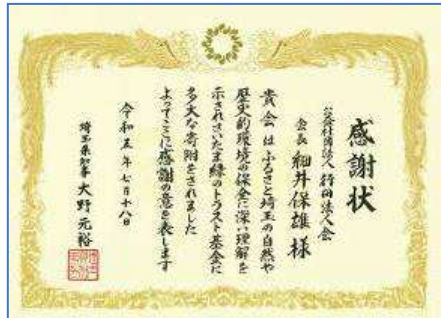 感謝状
公益社団法人 行田法人会
会長 細井保雄様
貴会はふるさと埼玉の自然や
歴史的環境の保全に深い理解を
示されさいたま緑のトラスト基金に
多大な寄附をされました
よってここに感謝の意を表します
令和五年七月十八日
埼玉県知事 大野元裕